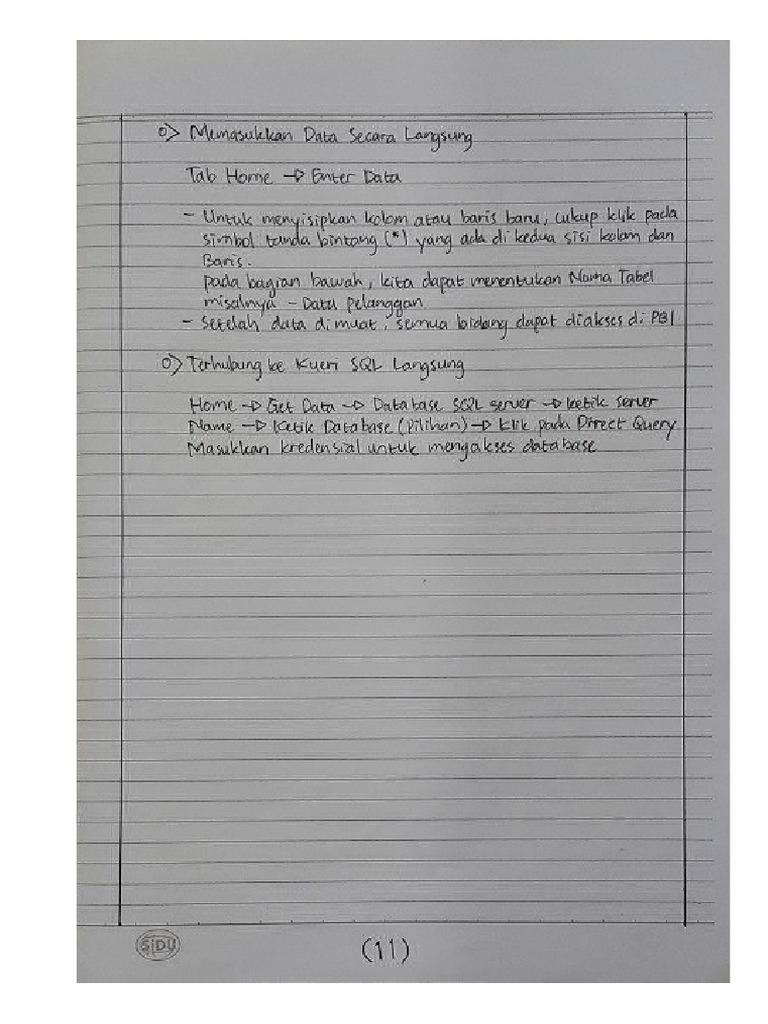 o> Memasukkan Data Secara Langsung
Tab Home → Enter Data
- Untuk menyisipkan kolom atau baris baru, cukup klik pada
simbol tanda bintang (*) yang ada di kedua sisi kolom dan
Baris.
pada bagian bawah, kita dapat menentukan Nama Tabel
misalnya - Data pelanggan
- Setelah data dimuat, semua bidang dapat diakses di PBI
o> Terhubung ke Kueri SQL Langsung
Home → Get Data → Database SQL server → ketik server
Name → Ketik Database (Pilihan) → Klik pada Direct Query
Masukkan kredensial untuk mengakses database
SIDU
(11)